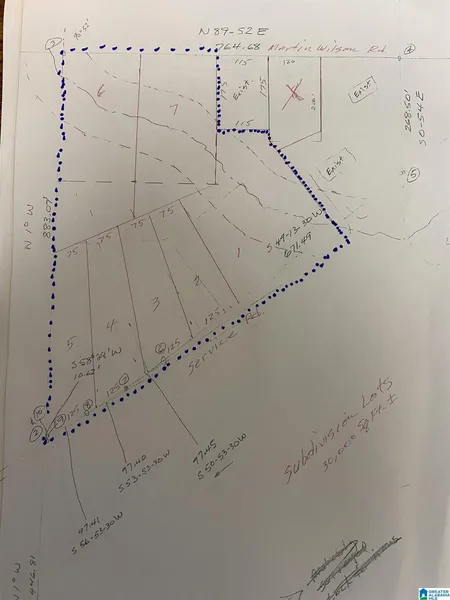 N 89-52 E
764.68 Martin Wilson Rd.
115
120
175
175
Exist
Exist
X
115
Exist
268.50'
S 0-54 E
4
5
6
7
N 1° W
883.07
S 49-13-30 W
671.49
75
75
75
75
1
2
3
4
5
125
125
125
125
Service Rd.
S 58°29' W
10.62'
97.45
S 50-53-30 W
97.40
S 53-53-30 W
97.41
S 56-53-30 W
Subdivision Lots
30,000 Sq Ft. ±
N 1° W
446.81
GREATER
ALABAMA
MLS